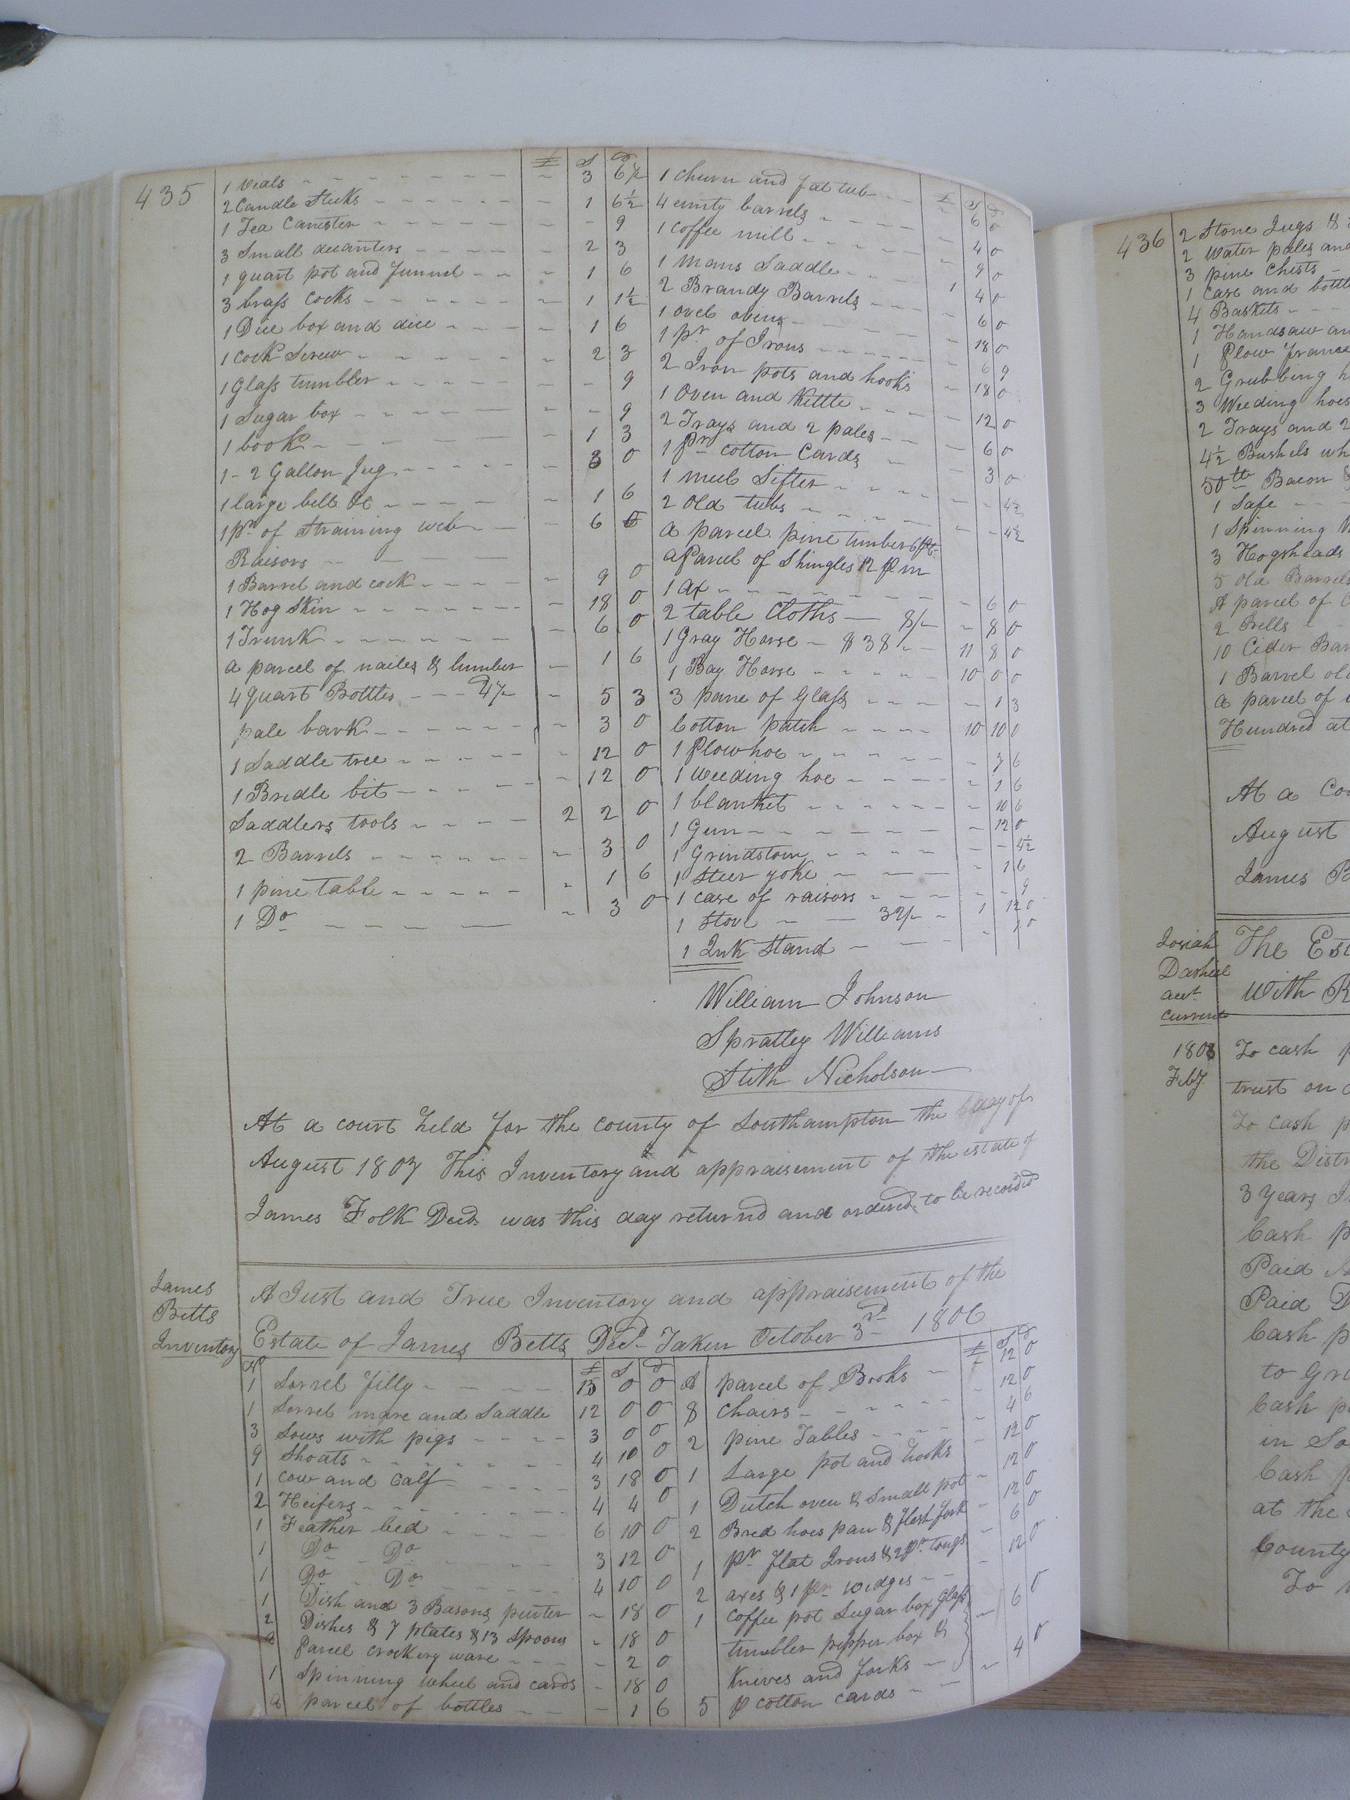 435
£ S D
1 Vials - - - 3 6½
2 Candle Sticks - - - 1 6½
1 Tea Canister - - - 9
3 Small decanters - - - 2 3
1 quart pot and funnel - - - 1 6
3 brass cocks - - - 1 1½
1 Dice box and dice - - - 1 6
1 Cock Screw - - - 2 3
1 Glass tumbler - - - 9
1 Sugar box - - - 9
1 book - - - 1 3
1 - 2 Gallon Jug - - - 3 0
1 large bell &c - - - 1 6
1 pr of Straining web - - - 6
Raisors - -
1 Barrel and cock - - - 9 0
1 Hog Skin - - - 18 0
1 Trunk - - - 6 0
a parcel of nailes & lumber - 1 6
4 quart Bottles - - - 5 3
pale bark - - - 3 0
1 Saddle tree - - - 12 0
1 Bridle bit - - - 12 0
Saddlers tools - - - 2 2 0
2 Barrels - - - 3 0
1 pine table - - - 1 6
1 Do - - - 3 0
£ S D
1 churn and fat tub - - - 6 0
4 emty barrels - - - 4 0
1 coffee mill - - - 9 0
1 mans Saddle - - - 1 4 0
2 Brandy Barrels - - - 6 0
1 ovel ovens - - - 18 0
1 pr of Irons - - - 6 9
2 Iron pots and hooks - 18 0
1 Oven and Kittle - - - 12 0
2 Trays and 2 pales - - - 6 0
1 pr cotton Cards - - 3 0
1 meel Sifter - - - 4½
2 old tubs - - - 4½
a parcel pine timber
a Parcel of Shingles 12 p m
1 ax - - - 6 0
2 table Cloths - 8/- - 8 0
1 Gray Horse - $38 - - 11 8 0
1 Bay Horse - - - 10 0 0
3 pane of Glass - - - 1 3
Cotton patch - - - 10 10 0
1 Plow hoe - - - 7 6
1 weeding hoe - - - 1 6
1 blanket - - - 10 6
1 Gun - - - 12 0
1 Grindstown - - - 4½
1 Steer yoke - - - 1 6
1 case of raisors - - - 9
1 Stove - - 32/- - 1 12 0
1 Ink Stand - - - 1 0
William Johnson
Spratley Williams
Stith Nicholson
At a court held for the County of Southampton the day of
August 1807 This Inventory and appraisement of the estate of
James Folk Decd was this day returnd and ordered to be recorded
James
Betts
Inventory
A Just and True Inventory and appraisement of the
Estate of James Betts Decd Taken October 3rd 1806
£ S D
1 Sorrel filly - - - 15 0 0
1 Sorrel mare and Saddle 12 0 0
3 Sows with pigs - - - 3 0 0
9 Shoats - - - 4 10 0
1 cow and Calf - - - 3 18 0
2 Heifers - - - 4 4 0
1 Feather bed - - - 6 10 0
1 Do Do - - - 3 12 0
1 Do Do - - - 4 10 0
1 Dish and 3 Basons pewter - 18 0
2 Dishes & 7 plates & 13 Spoons - 18 0
a Parcel crockery ware - - - 2 0
1 Spinning wheel and cards - 18 0
a parcel of bottles - - - 1 6
£ S D
A parcel of Books - 12 0
8 Chairs - - - 12 0
2 pine Tables - - - 4 6
1 Large pot and hooks - 12 0
1 Dutch oven & Small pot - 12 0
2 Bred hoes pan & flesh fork - 12 0
1 pr flat Irons & 2 pr tongs - 6 0
2 axes & 1 pr wedges - - 12 0
1 Coffee pot Sugar box Glass
tumbler pepper box &
Knives and forks - 6 0
5 p cotton cards - - 4 0
436
2 Stone Jugs &
2 Water pales and
3 pine Chests -
1 Case and bottl
4 Baskets - - -
1 Handsaw an
1 Plow
2 Grubbing h
3 Weeding hoes
2 Trays and 2
4½ Bushels wh
50 lb Bacon
1 Safe - -
1 Spinning W
3 Hogsheads
5 old Barrels
A parcel of
2 Bells -
10 Cider Bar
1 Barrel old
a parcel of
Hundred at
At a Cou
August
James B
Josiah
Dashiel
act
Current
The Est
with R
1808
Feby
To cash p
trust on
To cash p
the Distr
3 years In
Cash p
Paid
Paid D
Cash p
to Gr
Cash p
in So
Cash p
at the
County
To